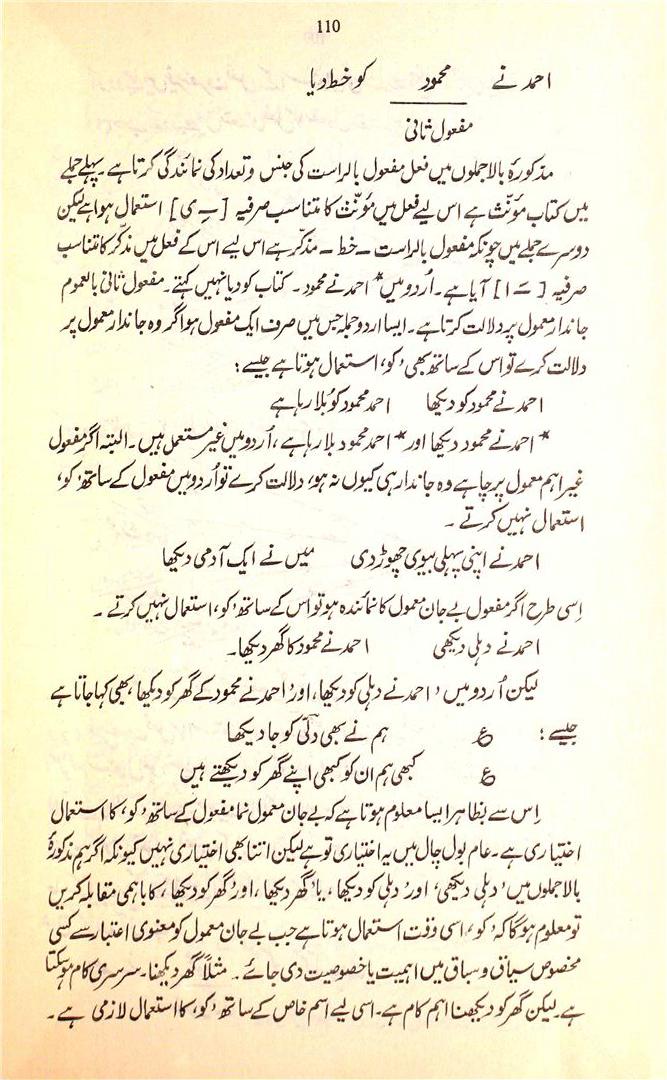 110
احمد نے محمود کو خط دیا
مفعول ثانی
مذکورۂ بالا جملوں میں فعل مفعول بالراست کی جنس و تعداد کی نمائندگی کرتا ہے۔ پہلے جملے
میں کتاب مؤنث ہے اس لیے فعل میں مؤنث کا متناسب صرفیہ [ ـِ ی ] استعمال ہوا ہے لیکن
دوسرے جملے میں چونکہ مفعول بالراست ــ خط ــ مذکر ہے اس لیے اس کے فعل میں مذکر کا متناسب
صرفیہ [ ـَ ا ] آیا ہے۔ اُردو میں * احمد نے محمود ۔ کتاب کو دیا نہیں کہتے۔ مفعول ثانی بالعموم
جاندار معمول پر دلالت کرتا ہے۔ ایسا اردو جملہ جس میں صرف ایک مفعول ہو اگر وہ جاندار معمول پر
دلالت کرے تو اس کے ساتھ بھی ’کو‘ استعمال ہوتا ہے جیسے :
احمد نے محمود کو دیکھا احمد محمود کو بلا رہا ہے
* احمد نے محمود دیکھا اور * احمد محمود بلا رہا ہے ، اُردو میں غیر مستعمل ہیں۔ البتہ اگر مفعول
غیر اہم معمول پر چاہے وہ جاندار ہی کیوں نہ ہو، دلالت کرے تو اُردو میں مفعول کے ساتھ ’کو‘
استعمال نہیں کرتے ۔
احمد نے اپنی پہلی بیوی چھوڑ دی میں نے ایک آدمی دیکھا
اِسی طرح اگر مفعول بے جان معمول کا نمائندہ ہو تو اس کے ساتھ ’کو‘ استعمال نہیں کرتے ۔
احمد نے دہلی دیکھی احمد نے محمود کا گھر دیکھا۔
لیکن اُردو میں ’احمد نے دہلی کو دیکھا‘ اور ’احمد نے محمود کے گھر کو دیکھا‘ بھی کہا جاتا ہے
جیسے : ع ہم نے بھی دلّی کو جا دیکھا
ع کبھی ہم ان کو کبھی اپنے گھر کو دیکھتے ہیں
اِس سے بظاہر ایسا معلوم ہوتا ہے کہ بے جان معمول نما مفعول کے ساتھ ’کو‘ کا استعمال
اختیاری ہے۔ عام بول چال میں یہ اختیاری تو ہے لیکن اتنا بھی اختیاری نہیں کیونکہ اگر ہم مذکورۂ
بالا جملوں میں ’دہلی دیکھی‘ اور ’دہلی کو دیکھا‘ یا ’گھر دیکھا‘ اور ’گھر کو دیکھا‘ کا باہمی مقابلہ کریں
تو معلوم ہوگا کہ ’کو‘ اسی وقت استعمال ہوتا ہے جب بے جان معمول کو معنوی اعتبار سے کسی
مخصوص سیاق و سباق میں اہمیت یا خصوصیت دی جائے ۔ مثلاً گھر دیکھنا۔ سرسری کام ہوسکتا
ہے۔ لیکن گھر کو دیکھنا اہم کام ہے۔ اسی لیے اسم خاص کے ساتھ ’کو‘ کا استعمال لازمی ہے ۔